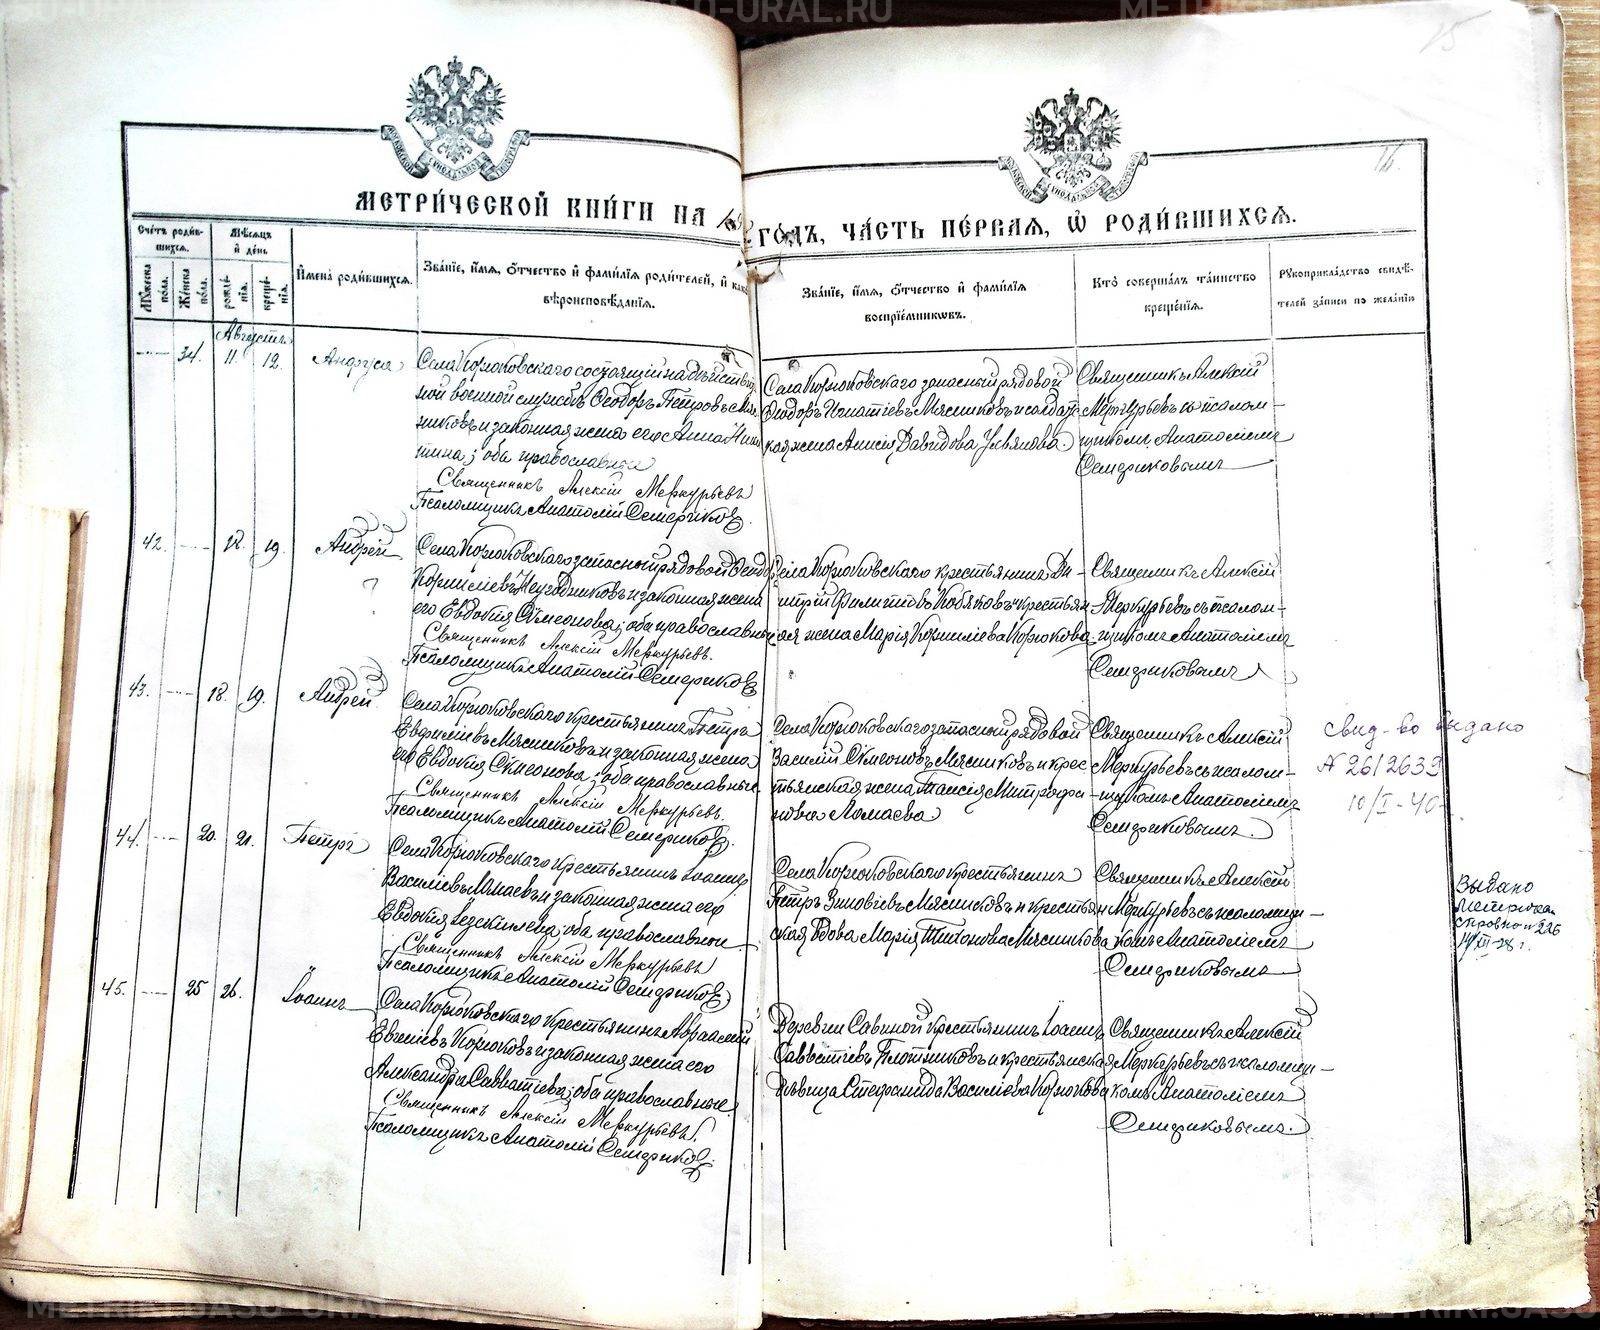 METRIKI.GASO-URAL.RU
15
16.
МЕТРИ́ЧЕСКОЙ КНИ́ГИ НА 18
ГО́ДЪ, ЧА́СТЬ ПЕ́РВАЯ, Ѡ РОДИ́ВШИХСЯ.
Сче́тъ роди́вшихся.
Му́жеска по́ла.
Же́нска по́ла.
Мѣ́сяцъ и де́нь
рожде́нія.
креще́нія.
И҆мена̀ роди́вшихся.
Зва́нїе, и҆́мя, ѻ҆́тчество и҆ фами́лїя роди́телей, и҆ како
вѣроисповѣ́данїя.
Зва́нїе, и҆́мя, ѻ҆́тчество и҆ фами́лїя
воспрїе́мниковъ.
Кто̀ соверша́лъ та́инство
креще́нїя.
Рукоприкла́дство свидѣ́-
телей за́писи по жела́нїю
Августъ
34. 11. 12.
Села Корюковскаго состоящій на дѣйстви
ной военной службѣ Ѳеодоръ Петровъ Мяс
никовъ и законная жена его Анна Ники
тина; оба православные
Священникъ Алексій Меркурьевъ
Псаломщикъ Анатолій Семериковъ
Села Корюковскаго запасный рядовой
Ѳеодоръ Игнатіевъ Мясниковъ и солдатс
кая жена Анисія Давидова Ульянова.
Священникъ Алексій
Меркурьевъ съ псалом-
щикомъ Анатоліемъ
Семериковымъ
42. 18. 19. Андрей
Села Корюковскаго запасный рядовой Ѳеодо
Корниліевъ Неугодниковъ и законная жена
его Евдокія Симеонова; оба православные
Священникъ Алексій Меркурьевъ.
Псаломщикъ Анатолій Семериковъ
Села Корюковскаго крестьянинъ Ди-
митрій Филиповъ Кобяковъ и крестьян
ая жена Марія Корнилиева Корюкова
Священникъ Алексій
Меркурьевъ съ псалом-
щикомъ Анатоліемъ
Семериковымъ
43. 18. 19. Андрей
Села Корюковскаго крестьянинъ Петръ
Евфиміевъ Мясниковъ и законная жена
его Евдокія Симеонова; оба православные
Священникъ Алексій Меркурьевъ.
Псаломщикъ Анатолій Семериковъ.
Села Корюковскаго запасный рядовой
Василій Симеоновъ Мясниковъ и крес
тьянская жена Таисія Митрофа-
нова Ломаева
Священникъ Алексій
Меркурьевъ съ псалом-
щикомъ Анатоліемъ
Семериковымъ.
Свид-во выдано
№ 2612639
10/I-40
44. 20. 21. Петръ
Села Корюковскаго крестьянинъ Іоаннъ
Василіевъ Ломаевъ и законная жена его
Евдокія Іезекіилева; оба православные
Священникъ Алексій Меркурьевъ
Псаломщикъ Анатолій Семериковъ
Села Корюковскаго крестьянинъ
Петръ Зиновіевъ Мясниковъ и крестьян
ская вдова Марія Тихонова Мясникова
Священникъ Алексій
Меркурьевъ съ псаломщи-
комъ Анатоліемъ
Семериковымъ
Выдано
метрическ.
справка № 226
14/III-28 г.
45. 25 26. Іоаннъ
Села Корюковскаго крестьянинъ Авраамій
Евгеніевъ Корюковъ и законная жена его
Александра Савватіева; оба православные.
Священникъ Алексій Меркурьевъ.
Псаломщикъ Анатолій Семериковъ.
Деревни Савиной крестьянинъ Іоаннъ
Савватіевъ Плотниковъ и крестьянская
дѣвица Стефанида Василіева Корюкова
Священникъ Алексій
Меркурьевъ съ псаломщи-
комъ Анатоліемъ
Семериковымъ.
METRIKI.GASO-URAL.RU
METRIKI.GASO